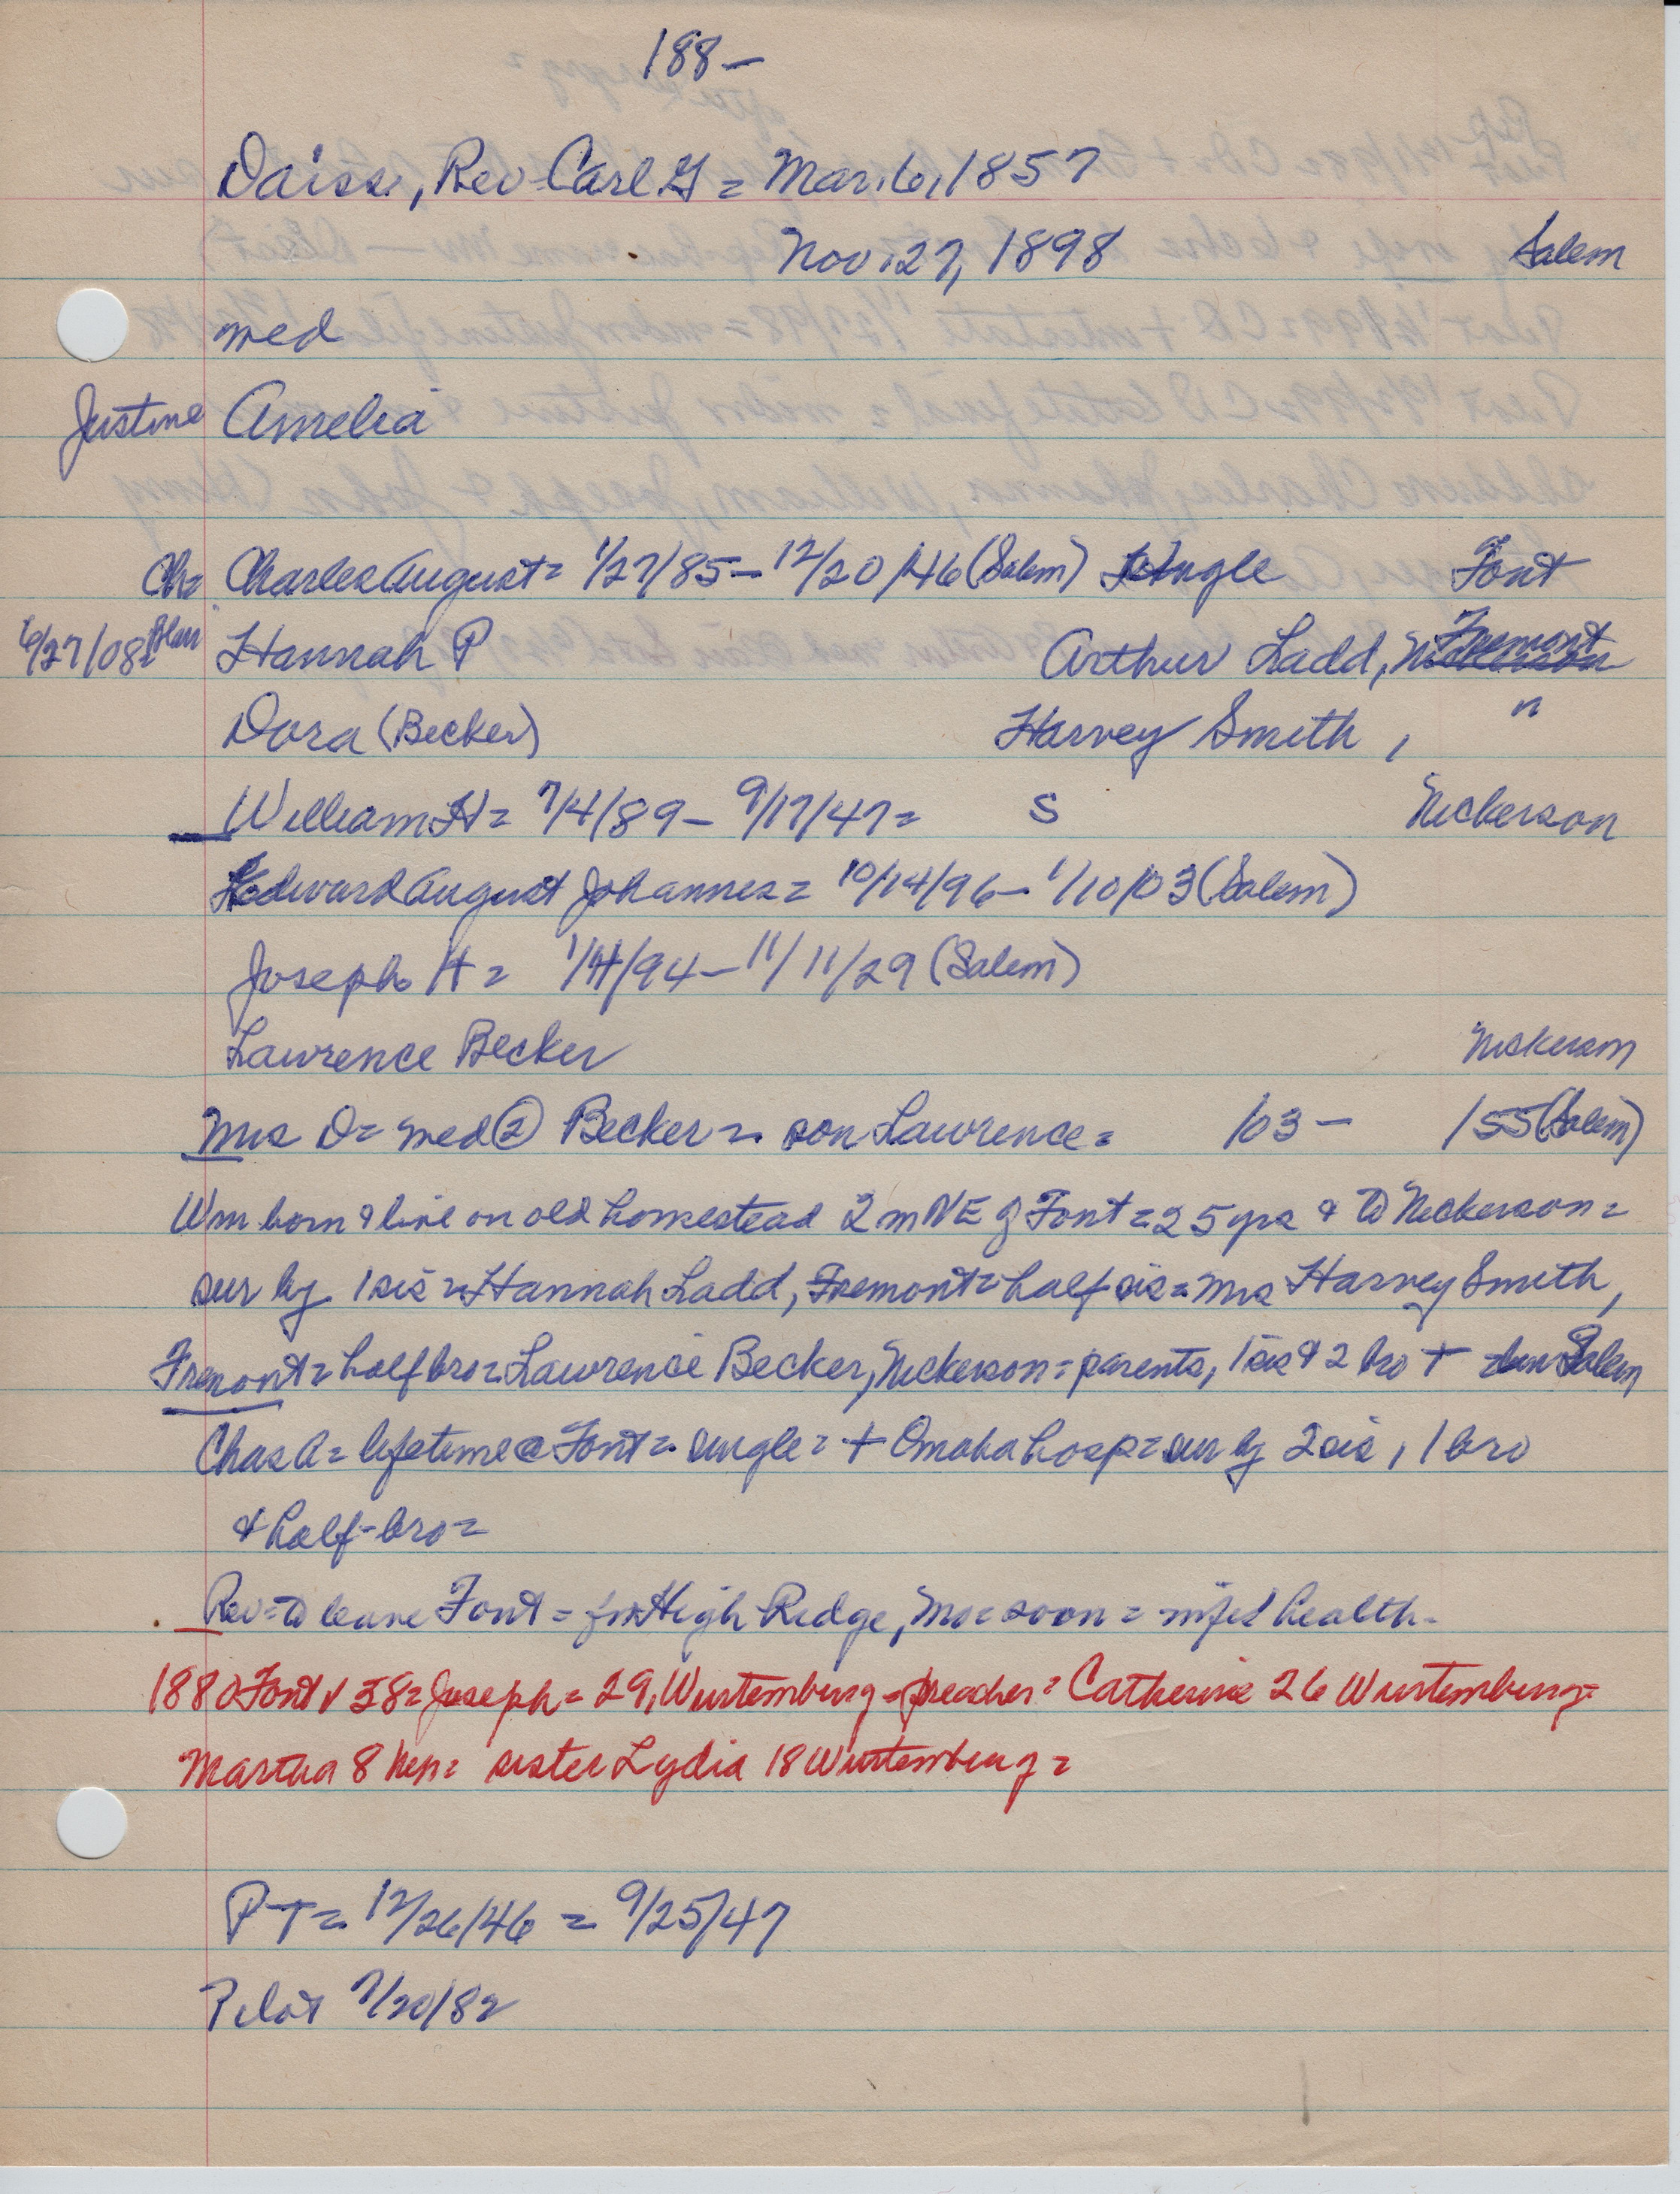 188-
Daiss, Rev Carl G = Mar. 6, 1857
Nov. 27, 1898 Salem
med
Justine Amelia
Ch= Charles August = 1/27/85 - 12/20/46 (Salem) single Font
6/27/08 Hannah P Arthur Ladd, Fremont
Dora (Becker) Harvey Smith, "
William H = 7/4/89 - 9/17/47 = S Nickerson
Edward August Johannes = 10/14/96 - 1/10/03 (Salem)
Joseph H = 1/14/94 - 11/11/29 (Salem)
Lawrence Becker Nickerson
Mrs D = med ② Becker = son Lawrence = /03 - /55 (Salem)
Wm born & live on old homestead 2 m NE of Font = 25 yrs & to Nickerson =
sur by 1 sis = Hannah Ladd, Fremont = half sis = Mrs Harvey Smith,
Fremont = half bro = Lawrence Becker, Nickerson = parents, 1 sis & 2 bro + = Salem
Chas A = lifetime @ Font = single = + Omaha hosp = sur by 2 sis, 1 bro
& half-bro =
Rev = to leave Font = for High Ridge, Mo = soon = health -
1880 Font v 38 = Joseph = 29, Wurtemburg = preacher = Catherine 26 Wurtemburg =
Martha 8 Neb = sister Lydia 18 Wurtemburg =
PT = 12/26/46 = 9/25/47
Pilot 7/20/82